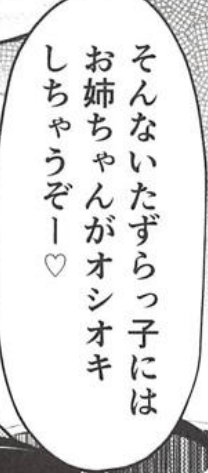 そんないたずらっ子には
お姉ちゃんがオシオキ
しちゃうぞー♡